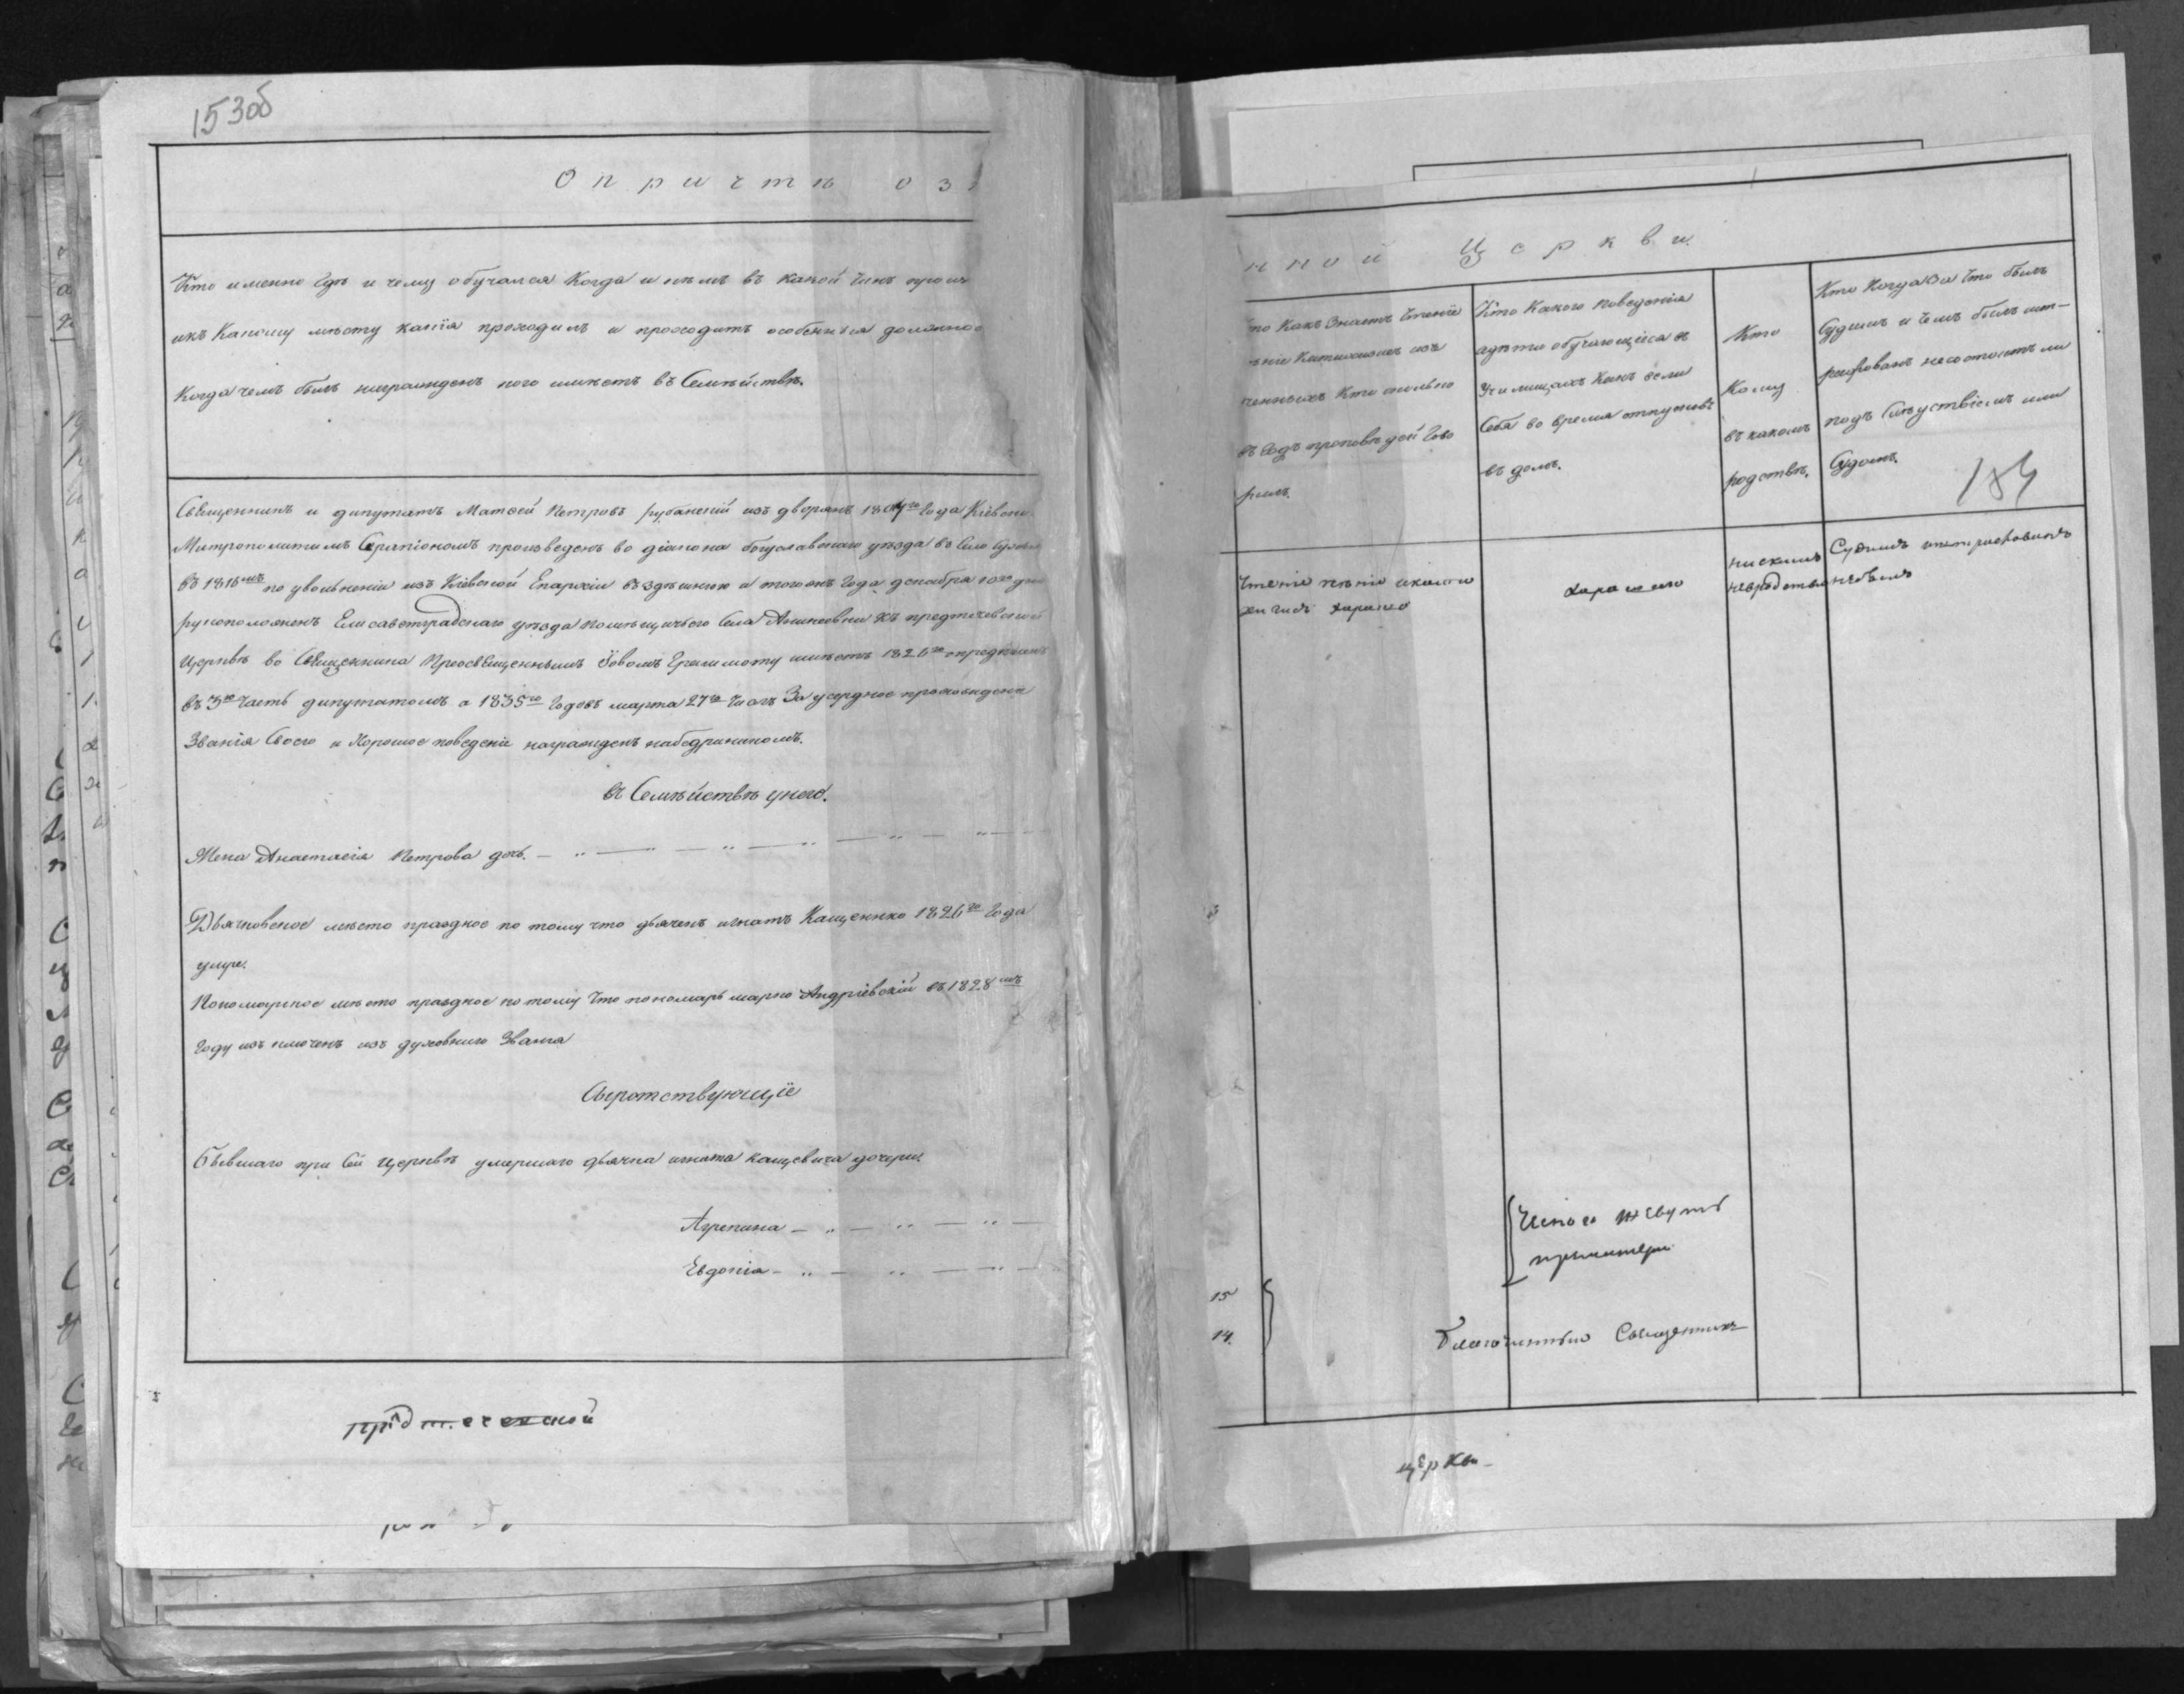 153об
О причтѣ оз
Кто именно гдѣ и чему обучался когда и кѣмъ въ какой чинъ произ
икъ какому мѣсту какія проходилъ и проходитъ особенныя должнос
когда чемъ былъ награжденъ кого имѣетъ въ Семѣйствѣ.
Священникъ и дипутатъ Матѳей Петровъ рубанскій изъ дворянъ года Кіевски
Митрополитамъ Серапіономъ произведенъ во діакона богуславскаго уѣзда въ Село
въ 1816мъ по увольненіи изъ Кіевской Епархіи въ здѣшнюю и тогожъ года декабря 10го дня
рукоположенъ Елисаветградскаго уѣзда помѣщичьяго Села Аникеевки къ предтечевской
Церквѣ во Священника Преосвященнымъ Іовомъ грамоту имѣетъ 1826го опредѣленъ
въ 3ю часть дипутатомъ а 1835го годовъ марта 27го числ За усердное прохожденіе
Званія своего и Хорошое поведеніе награжденъ набедриникомъ.
въ Семѣйствѣ унего.
Жена Анастасія Петрова дочь. — „ — „ — „ — „ — „ — „
Дьячковское мѣсто праздное по тому что дьячекъ игнатъ Кащенко 1826го года
умре.
Пономарское мѣсто праздное по тому что пономарь марко Андріевскій въ 1828мъ
году изъ ключенъ изъ духовнаго Званія
Сыротствующіе
бывшаго при Сей Церквѣ умершаго дьячка игната кащевича дочери.
Агрепина — „ — „ — „ —
Евдокія — „ — „ — „ —
предтечевской
нной Церкви.
то какъ Знаетъ Чтеніе
ніе Катихизисъ изъ
ченныхъ кто сколько
въ годъ проповѣдей гово
рилъ.
Кто какого поведенія
адѣти обучающіися въ
Училищахъ какъ вели
Себя во время отпусковъ
въ домъ.
Кто
кому
въ какомъ
родствѣ.
Кто когда За что былъ
Судимъ и чемъ былъ шт-
рафованъ несостоитъ ли
подъ Слѣдствіемъ или
Судомъ.
154
Чтеніе пѣніе икати
хи зисъ харашо
харашого
нискимъ
невродстви
Судимъ иштрафованъ
небылъ
Чесно живутъ
прыматери
15
14.
Благочинный Священникъ
церкви